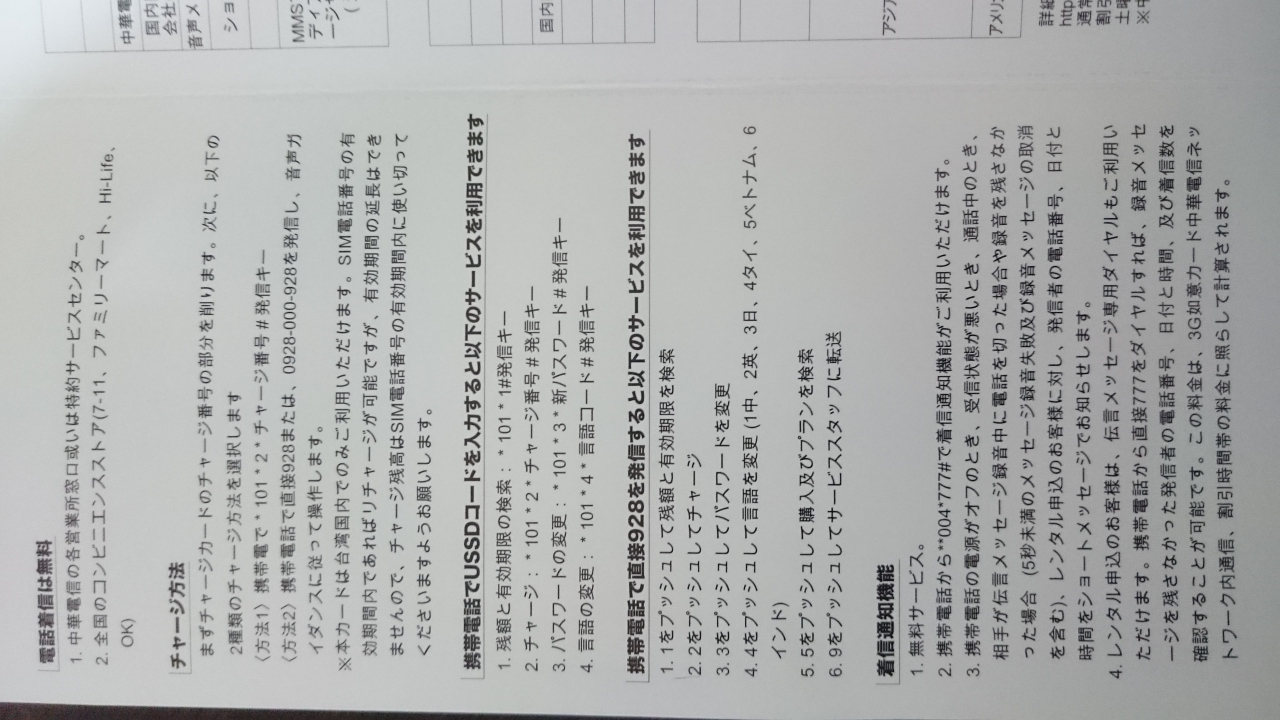 電話着信は無料
1. 中華電信の各営業所窓口或いは特約サービスセンター。
2. 全国のコンビニエンスストア(7-11、ファミリーマート、Hi-Life、
OK)
チャージ方法
まずチャージカードのチャージ番号の部分を削ります。次に、以下の
2種類のチャージ方法を選択します
〈方法1〉携帯電で*101*2*チャージ番号#発信キー
〈方法2〉携帯電話で直接928または、0928-000-928を発信し、音声ガ
イダンスに従って操作します。
※本カードは台湾国内でのみご利用いただけます。SIM電話番号の有
効期間内であればリチャージが可能ですが、有効期間の延長はでき
ませんので、チャージ残高はSIM電話番号の有効期間内に使い切って
くださいますようお願いします。
携帯電話でUSSDコードを入力すると以下のサービスを利用できます
1. 残額と有効期限の検索：*101*1#発信キー
2. チャージ：*101*2*チャージ番号#発信キー
3. パスワードの変更：*101*3*新パスワード#発信キー
4. 言語の変更：*101*4*言語コード#発信キー
携帯電話で直接928を発信すると以下のサービスを利用できます
1. 1をプッシュして残額と有効期限を検索
2. 2をプッシュしてチャージ
3. 3をプッシュしてパスワードを変更
4. 4をプッシュして言語を変更 (1中、2英、3日、4タイ、5ベトナム、6
インド)
5. 5をプッシュして購入及びプランを検索
6. 9をプッシュしてサービススタッフに転送
着信通知機能
1. 無料サービス。
2. 携帯電話から**004*777#で着信通知機能がご利用いただけます。
3. 携帯電話の電源がオフのとき、受信状態が悪いとき、通話中のとき、
相手が伝言メッセージ録音中に電話を切った場合や録音を残さなか
った場合 (5秒未満のメッセージ録音失敗及び録音メッセージの取消
を含む)、レンタル申込のお客様に対し、発信者の電話番号、日付と
時間をショートメッセージでお知らせします。
4. レンタル申込のお客様は、伝言メッセージ専用ダイヤルもご利用い
ただけます。携帯電話から直接777をダイヤルすれば、録音メッセ
ージを残さなかった発信者の電話番号、日付と時間、及び着信数を
確認することが可能です。この料金は、3G如意カード中華電信ネッ
トワーク内通信、割引時間帯の料金に照らして計算されます。
中華電
国内
会社
音声メ
ショ
MMS
ディア
ージ
国内
アジア
アメリ
詳細
http
通常
割引
土曜
※中